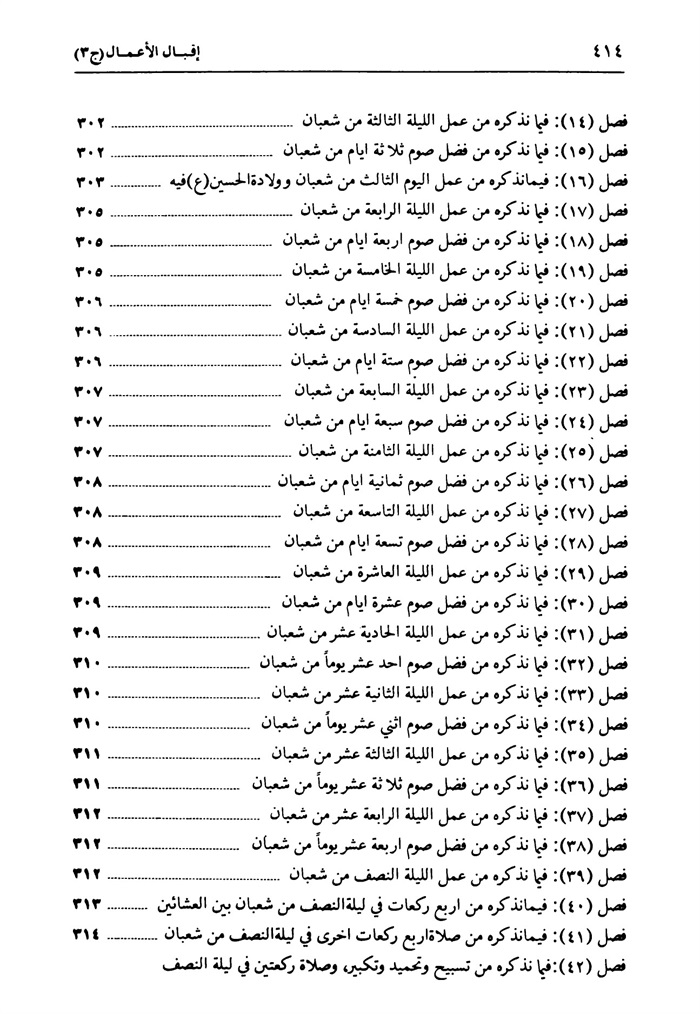 ٤١٤ إقبال الأعمال (ج٣)
فصل (١٤): فيما نذكره من عمل الليلة الثالثة من شعبان ........ ٣٠٢
فصل (١٥): فيما نذكره من فضل صوم ثلاثة ايام من شعبان ........ ٣٠٢
فصل (١٦): فيمانذكره من عمل اليوم الثالث من شعبان وولادةالحسين(ع)فيه ........ ٣٠٣
فصل (١٧): فيما نذكره من عمل الليلة الرابعة من شعبان ........ ٣٠٥
فصل (١٨): فيما نذكره من فضل صوم اربعة ايام من شعبان ........ ٣٠٥
فصل (١٩): فيما نذكره من عمل الليلة الخامسة من شعبان ........ ٣٠٥
فصل (٢٠): فيما نذكره من فضل صوم خمسة ايام من شعبان ........ ٣٠٦
فصل (٢١): فيما نذكره من عمل الليلة السادسة من شعبان ........ ٣٠٦
فصل (٢٢): فيما نذكره من فضل صوم ستة ايام من شعبان ........ ٣٠٦
فصل (٢٣): فيما نذكره من عمل الليلة السابعة من شعبان ........ ٣٠٧
فصل (٢٤): فيما نذكره من فضل صوم سبعة ايام من شعبان ........ ٣٠٧
فصل (٢٥): فيما نذكره من عمل الليلة الثامنة من شعبان ........ ٣٠٧
فصل (٢٦): فيما نذكره من فضل صوم ثمانية ايام من شعبان ........ ٣٠٨
فصل (٢٧): فيما نذكره من عمل الليلة التاسعة من شعبان ........ ٣٠٨
فصل (٢٨): فيما نذكره من فضل صوم تسعة ايام من شعبان ........ ٣٠٨
فصل (٢٩): فيما نذكره من عمل الليلة العاشرة من شعبان ........ ٣٠٩
فصل (٣٠): فيما نذكره من فضل صوم عشرة ايام من شعبان ........ ٣٠٩
فصل (٣١): فيما نذكره من عمل الليلة الحادية عشر من شعبان ........ ٣٠٩
فصل (٣٢): فيما نذكره من فضل صوم احد عشر يوماً من شعبان ........ ٣١٠
فصل (٣٣): فيما نذكره من عمل الليلة الثانية عشر من شعبان ........ ٣١٠
فصل (٣٤): فيما نذكره من فضل صوم اثني عشر يوماً من شعبان ........ ٣١٠
فصل (٣٥): فيما نذكره من عمل الليلة الثالثة عشر من شعبان ........ ٣١١
فصل (٣٦): فيما نذكره من فضل صوم ثلاثة عشر يوماً من شعبان ........ ٣١١
فصل (٣٧): فيما نذكره من عمل الليلة الرابعة عشر من شعبان ........ ٣١٢
فصل (٣٨): فيما نذكره من فضل صوم اربعة عشر يوماً من شعبان ........ ٣١٢
فصل (٣٩): فيما نذكره من عمل الليلة النصف من شعبان ........ ٣١٢
فصل (٤٠): فيمانذكره من اربع ركعات في ليلةالنصف من شعبان بين العشائين ........ ٣١٣
فصل (٤١): فيمانذكره من صلاةاربع ركعات اخرى في ليلةالنصف من شعبان ........ ٣١٤
فصل (٤٢): فيما نذكره من تسبيح وتحميد وتكبير، وصلاة ركعتين في ليلة النصف